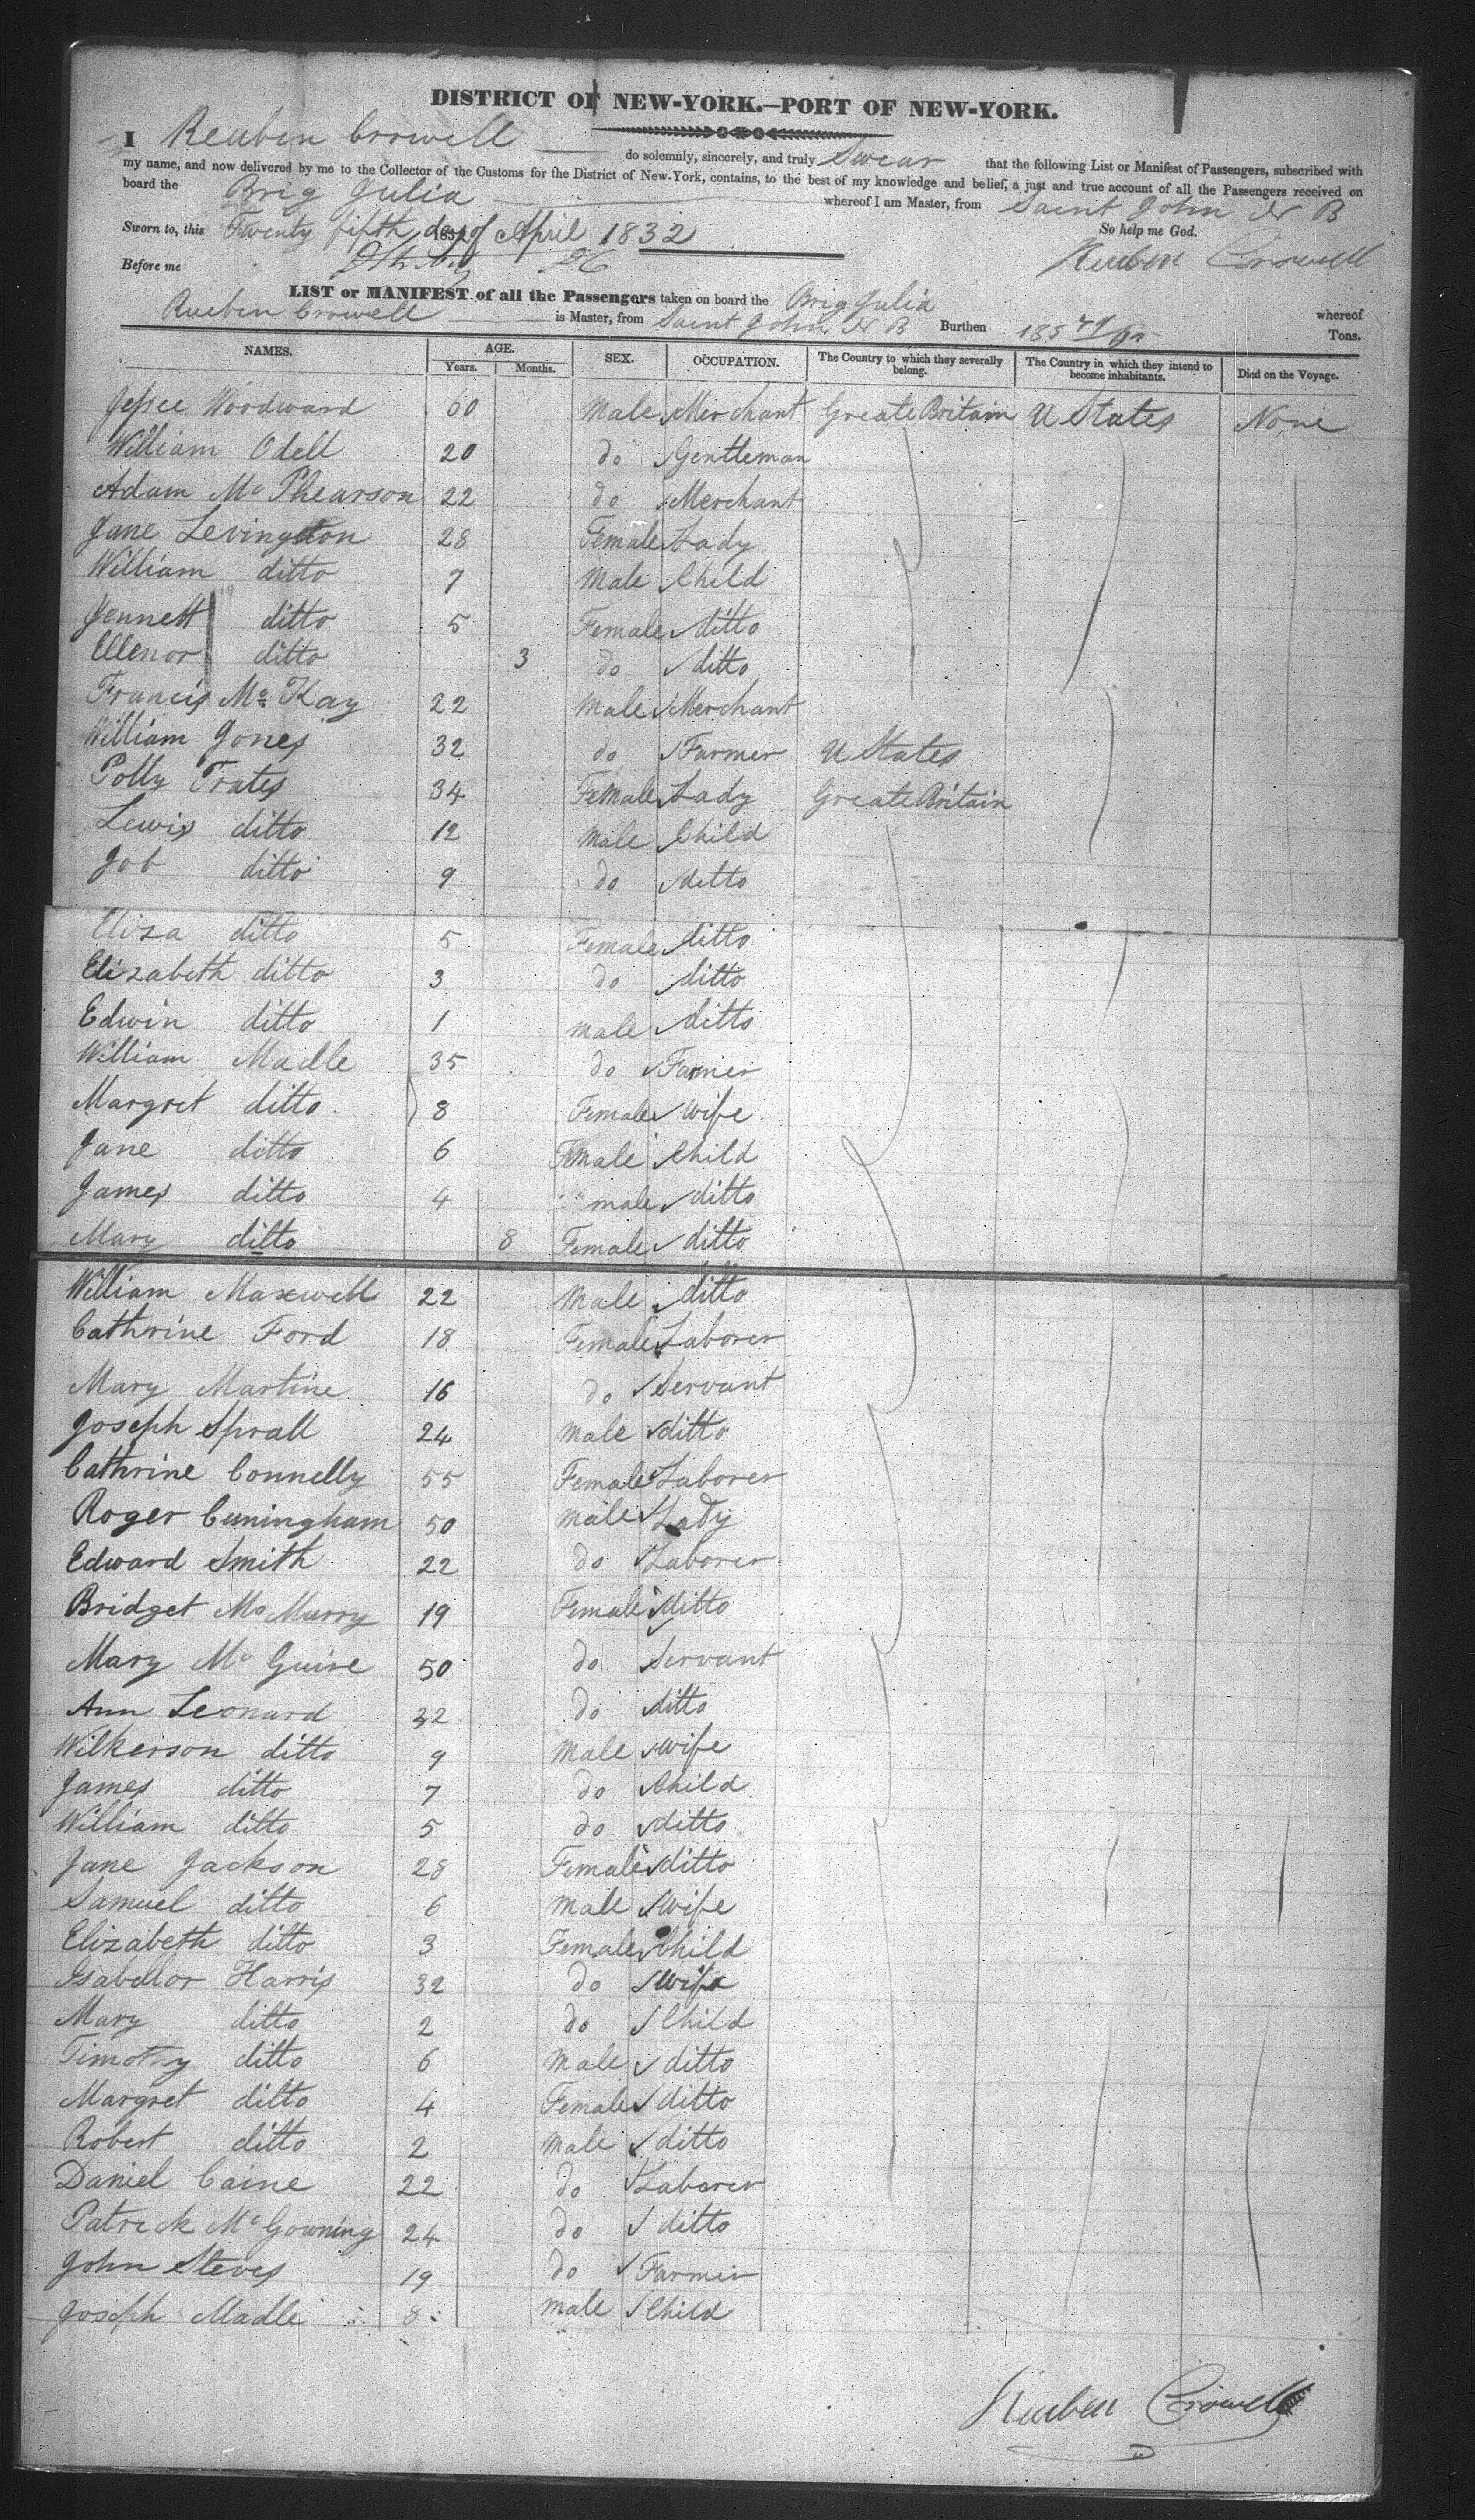 DISTRICT OF NEW-YORK.—PORT OF NEW-YORK.
I Reuben Crowell do solemnly, sincerely, and truly Swear that the following List or Manifest of Passengers, subscribed with
my name, and now delivered by me to the Collector of the Customs for the District of New-York, contains, to the best of my knowledge and belief, a just and true account of all the Passengers received on
board the Brig Julia whereof I am Master, from Saint John N B
Sworn to, this Twenty fifth day of April 1832 So help me God.
Before me Reuben Crowell
LIST or MANIFEST of all the Passengers taken on board the Brig Julia whereof
Rueben Crowell is Master, from Saint John N B Burthen 185 Tons.
NAMES. AGE. Years. Months. SEX. OCCUPATION. The Country to which they severally belong. The Country in which they intend to become inhabitants. Died on the Voyage.
Jessee Woodward 60 Male Merchant Greate Britain U States None
William Odell 20 do Gentleman
Adam Mc Phearson 22 do Merchant
Jane Levingston 28 Female Lady
William ditto 7 Male Child
Jennett ditto 5 Female ditto
Ellenor ditto 3 do ditto
Francis Mc Kay 22 Male Merchant
William Jones 32 do Farmer U States
Polly Trates 34 Female Lady Greate Britain
Lewis ditto 12 Male Child
Job ditto 9 do ditto
Eliza ditto 5 Female ditto
Elizabeth ditto 3 do ditto
Edwin ditto 1 male ditto
William Madle 35 do Farmer
Margret ditto 8 Female wife
Jane ditto 6 Female Child
James ditto 4 male ditto
Mary ditto 8 Female ditto
William Maxwell 22 Male ditto
Cathrine Ford 18 Female Laborer
Mary Martine 16 do Servant
Joseph Sprall 24 Male ditto
Cathrine Connelly 55 Female Laborer
Roger Cuningham 50 male Lady
Edward Smith 22 do Laborer
Bridget Mc Murry 19 Female ditto
Mary Mc Guire 50 do Servant
Ann Leonard 32 do ditto
Wilkerson ditto 9 Male wife
James ditto 7 do Child
William ditto 5 do ditto
Jane Jackson 28 Female ditto
Samuel ditto 6 Male wife
Elizabeth ditto 3 Female Child
Isabellor Harris 32 do wife
Mary ditto 2 do Child
Timothy ditto 6 Male ditto
Margret ditto 4 Female ditto
Robert ditto 2 Male ditto
Daniel Caine 22 do Laborer
Patreck Mc Gowning 24 do ditto
John Steves 19 do Farmer
Joseph Madle 8 Male Child
Reuben Crowell